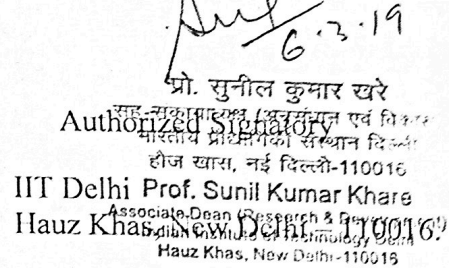 6.3.19
प्रो. सुनील कुमार खरे
सह-सकायाध्यक्ष (अनुसंधान एवं विकास
Authorized Signatory
भारतीय प्रौद्योगिकी संस्थान
हौज खास, नई दिल्ली-110016
IIT Delhi Prof. Sunil Kumar Khare
Associate Dean (Research &
Hauz Khas, New Delhi – 110016.
Indian Institute of Technology Delhi
Hauz Khas, New Delhi-110016